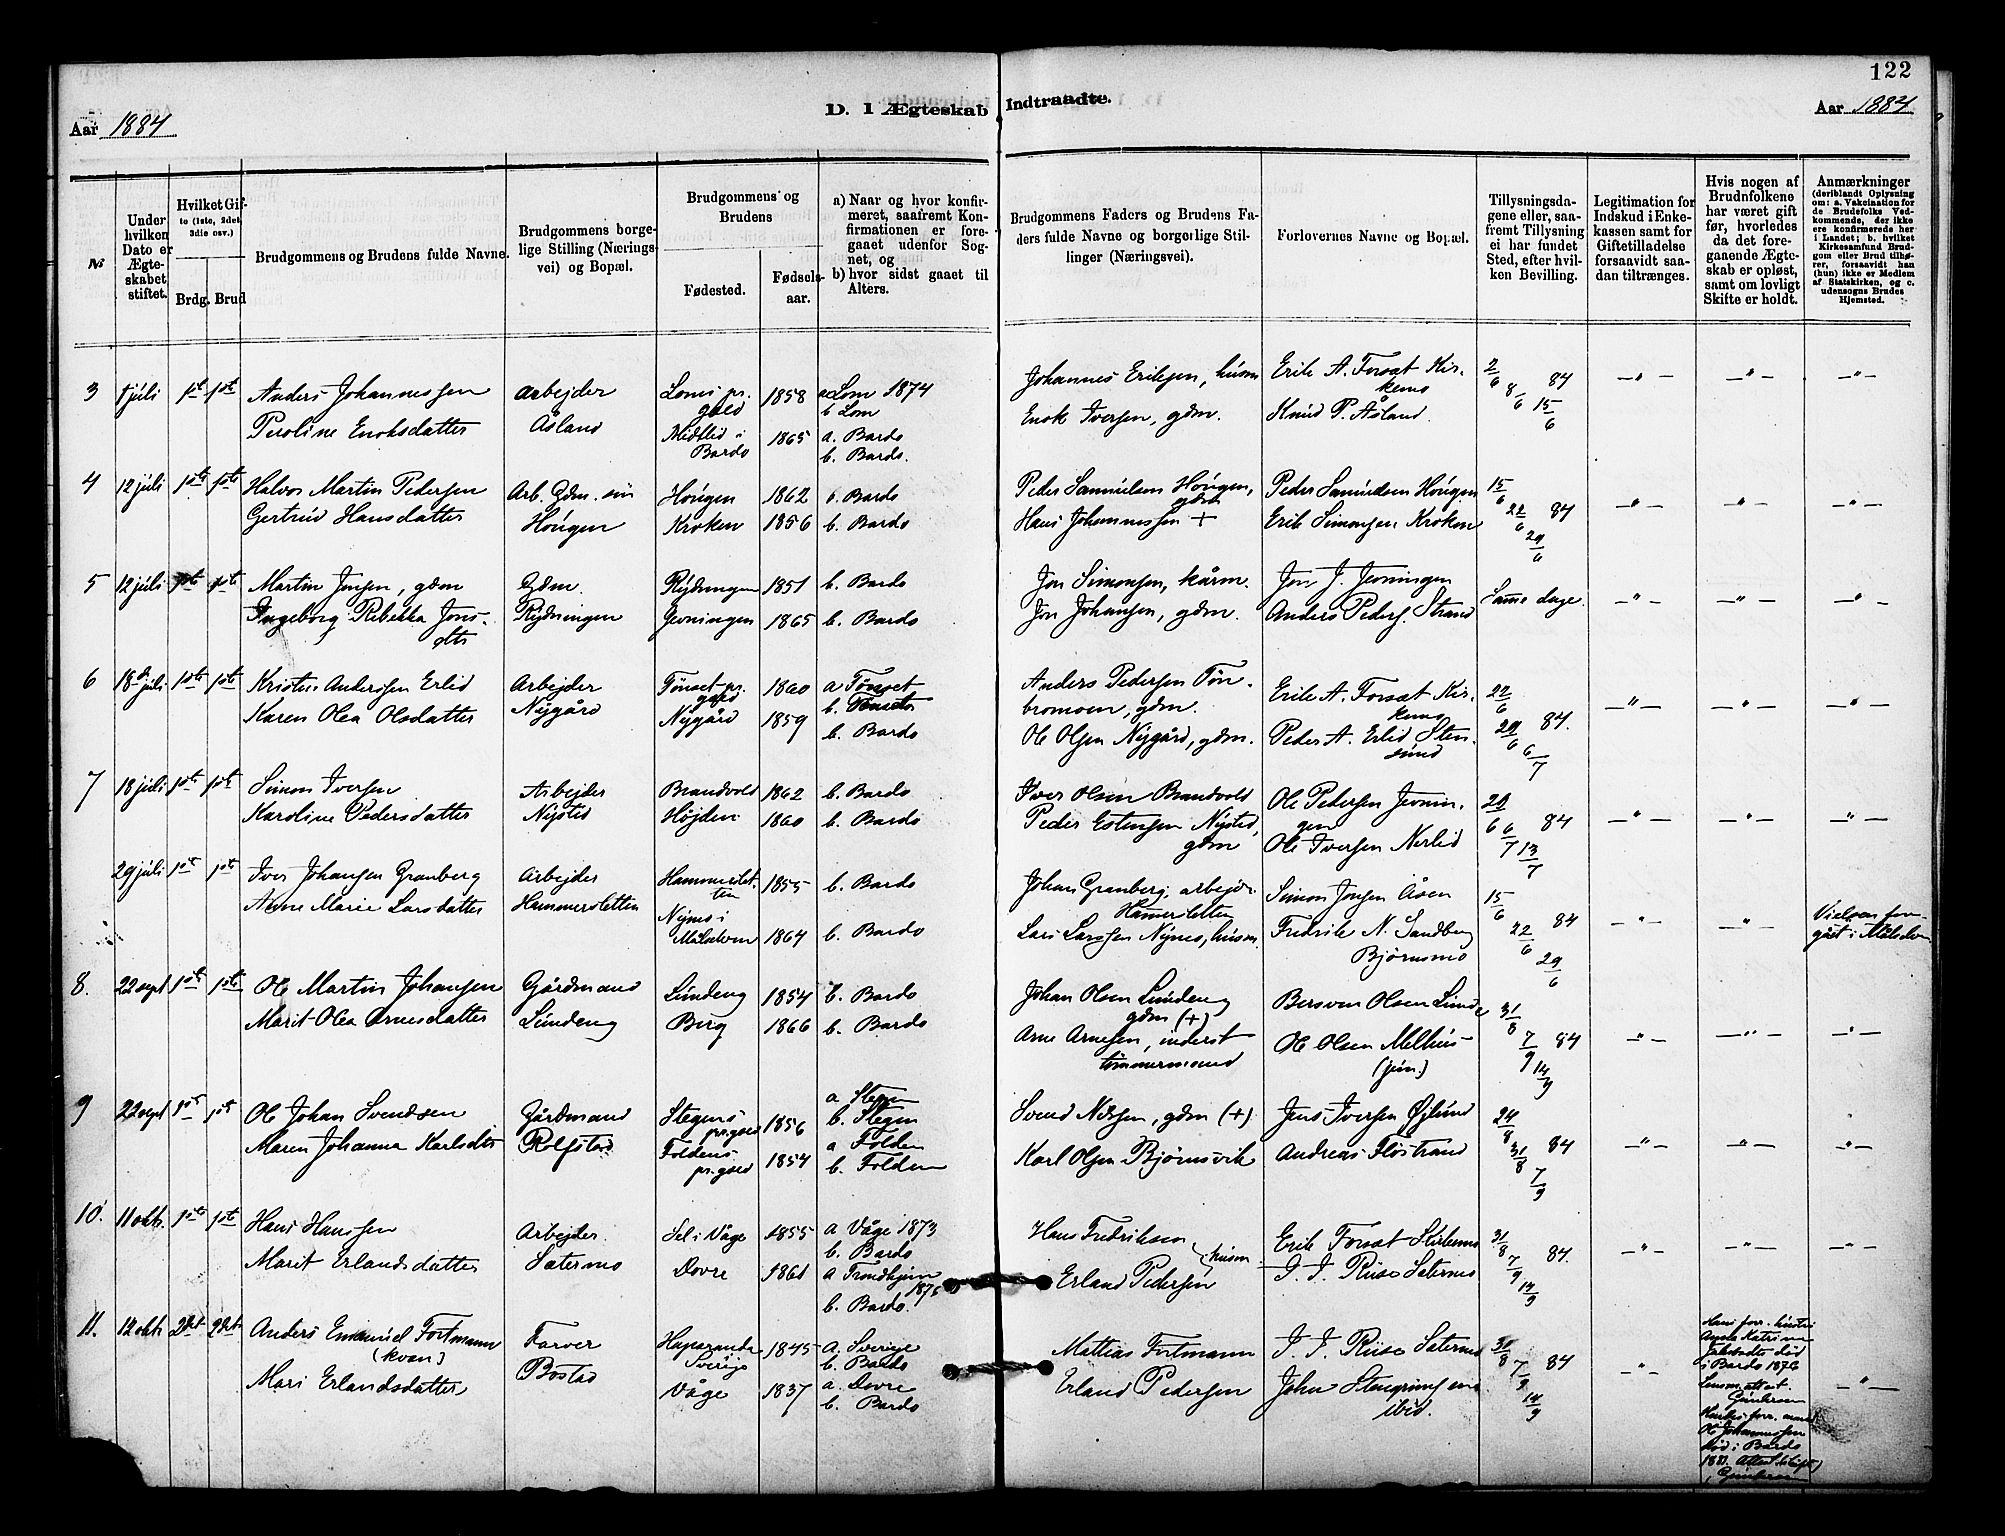 122
D. I Ægteskab Indtraadte.
Aar 1884
Aar 1884
№
Under hvilken Dato er Ægteskabet stiftet.
Hvilket Gifte (1ste, 2det, 3die osv.)
Brdg. Brud
Brudgommens og Brudens fulde Navne.
Brudgommens borgerlige Stilling (Næringsvei) og Bopæl.
Brudgommens og Brudens
Fødested.
Fødselsaar.
a) Naar og hvor konfirmeret, saafremt Konfirmationen er foregaaet udenfor Sognet, og
b) hvor sidst gaaet til Alters.
Brudgommens Faders og Brudens Faders fulde Navne og borgerlige Stillinger (Næringsvei).
Forlovernes Navne og Bopæl.
Tillysningsdagene eller, saafremt Tillysning ei har fundet Sted, efter hvilken Bevilling.
Legitimation for Indskud i Enkekassen samt for Giftetilladelse forsaavidt saadan tiltrænges.
Hvis nogen af Brudnfolkene har været gift før, hvorledes da det foregaaende Ægteskab er opløst, samt om lovligt Skifte er holdt.
Anmærkninger (deriblandt Oplysning om: a. Vakcination for de Brudefolks Vedkommende, der ikke ere konfirmerede her i Landet; b. hvilket Kirkesamfund Brudgom eller Brud tilhører, forsaavidt han (hun) ikke er Medlem af Statskirken, og c. udensogns Brudes Hjemsted.
3 1 juli 1st 1ste Anders Johannessen Arbejder Loms pr.gæld 1858 a Lom 1874 b Lom Johannes Eriksen, husm Erik A. Forsæt Kirkemo 2/6 8/6 15/6 84 —"— —"— —"—
Peroline Enoksdatter Åsland Midtlid i Bardo 1865 a. Bardo b. Bardo. Enok Iversen, gdm. Knud P. Åsland
4 12 juli 1ste 1ste Halvor Martin Pedersen Arb. Gdm. søn Hougen 1862 b. Bardo Peder Samuelsen Hougen, gdm Peder Samuelsen Hougen 15/6 22/6 29/6 84 —"— —"— —"—
Gertrud Hansdatter Hougen Kroken 1856 b. Bardo Hans Johannessen + Erik Simonsen Kroken
5 12 juli 1ste 1ste Martin Jonsen, gdm Gdm. Rydningen 1851 b. Bardo Jon Simonsen, kårm. Jon J. Jevningen Samme dage. —"— —"— —"—
Ingeborg Rebekka Jonsdtr Rydningen Jevningen 1865 b. Bardo Jon Johansen, gdm. Anders Peders. Strand
6 18de juli 1ste 1ste Kristen Anderssen Erlid Arbejder Tönset pr.gæld 1860 a Tönset b. Tönset Anders Pedersen Tönbromoen, gdm. Erik A. Forsæt Kirkemo 22/6 29/6 6/7 84. —"— —"— —"—
Karen Olea Olsdatter Nygård Nygård 1859 b. Bardo Ole Olsen Nygård, gdm. Peder A. Erlid Stensund
7 18 juli 1ste 1ste Simon Iversen Arbejder Brandvold 1862 b. Bardo Iver Olsen Brandvold Ole Pedersen Jevningen 29/6 6/7 13/7 84 —"— —"— —"—
Karoline Pedersdatter Nysted Højden 1860 b. Bardo Peder Estensen Nysted, gdm Ole Iversen Nerlid
29 juli 1st 1st Iver Johansen Granberg Arbejder Hammersletten 1855 b. Bardo Johan Granberg, arbejder Hamersletten Simon Jonsen Åsen 15/6 22/6 29/6 84 —"— " Vielsen foregået i Målselven
Anne Marie Larsdatter Hammersletten Nynes i Målselven 1864 b. Bardo Lars Larssen Nynes, husm Fredrik N. Sandberg Bjørnsmo
8. 22 sept 1ste 1ste Ole Martin Johansen Gårdmand Lundeng 1854 b. Bardo Johan Olsen Lundeng gdm (+) Bersven Olsen Lund 31/8 7/9 14/9 84 —"— —"— —"—
Marit Olea Arnesdatter Lundeng Berg 1866 b. Bardo Arne Arnesen, inderst tömmermand Ole Olsen Melhus (jun.)
9 22 sept 1st 1st Ole Johan Svendsen Gårdmand Stegens pr.gæld 1856 a Stegen b. Stegen Svend Nilsen, gdm (+) Jens Iversen Øjlund 24/8 31/8 7/9 84 —"— —"— —"—
Maren Johanna Karlsdtr Rolfstad Foldens pr.gæld 1854 a Folden b. Folden Karl Olsen Bjørnsvik Andreas Flöstrand
10. 11 okt. 1ste 1ste Hans Hanssen Arbejder Sel i Våge 1855 a Våge 1873 b. Bardo Hans Fredriksen husm Erik Forsæt Kirkemo 31/8 7/9 14/9 84. —"— —"— —"—
Marit Erlandsdatter Sætermo Dovre 1861 a Trondhjem 1876 b. Bardo. Erland Pedersen I. I. Rise Sætermo
11. 12 okt. 2det 2det Anders Emanuel Fortmann (kvæn) Farver Haparanda Sverige 1845 a. Sverige b. Bardo Mathias Fortmann I. I. Rise Sætermo 31/8 7/9 14/9 84 " Hans forr. hustru Anna Katrina død i Bardo 1876 —"—
Mari Erlandsdatter Bostad Våge 1837 a. Dovre b. Bardo Erland Pedersen John Stengrimsen ibid. Hendes forr. mand Ole Johannessen død i Bardo